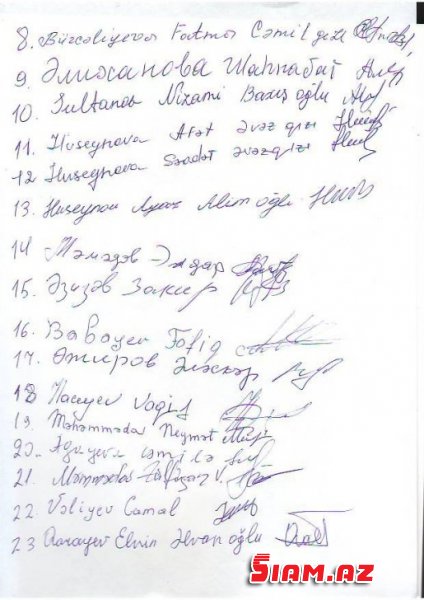 8. Bürcəliyeva Fatma Cəmil qızı
9 Әлиханова Шахнабат
10. Sultanov Nizami Baxış oğlu
11. Huseynova Afət Əvəz qızı
12 Huseynova Səadət Əvəz qızı
13. Huseynov Ayaz Alim oğlu
14 Мәмәдов Елдар
15. Әзизов Закир
16. Babayev Tofiq
17. Әмиров Әләскәр
18 Vaqif
19. Məhəmmədov Neymət
20. Ağayeva Cəmilə
21. Məmmədov V.
22. Vəliyev Camal
23 Qarayev Elvin Əlvan oğlu
SIAM.AZ